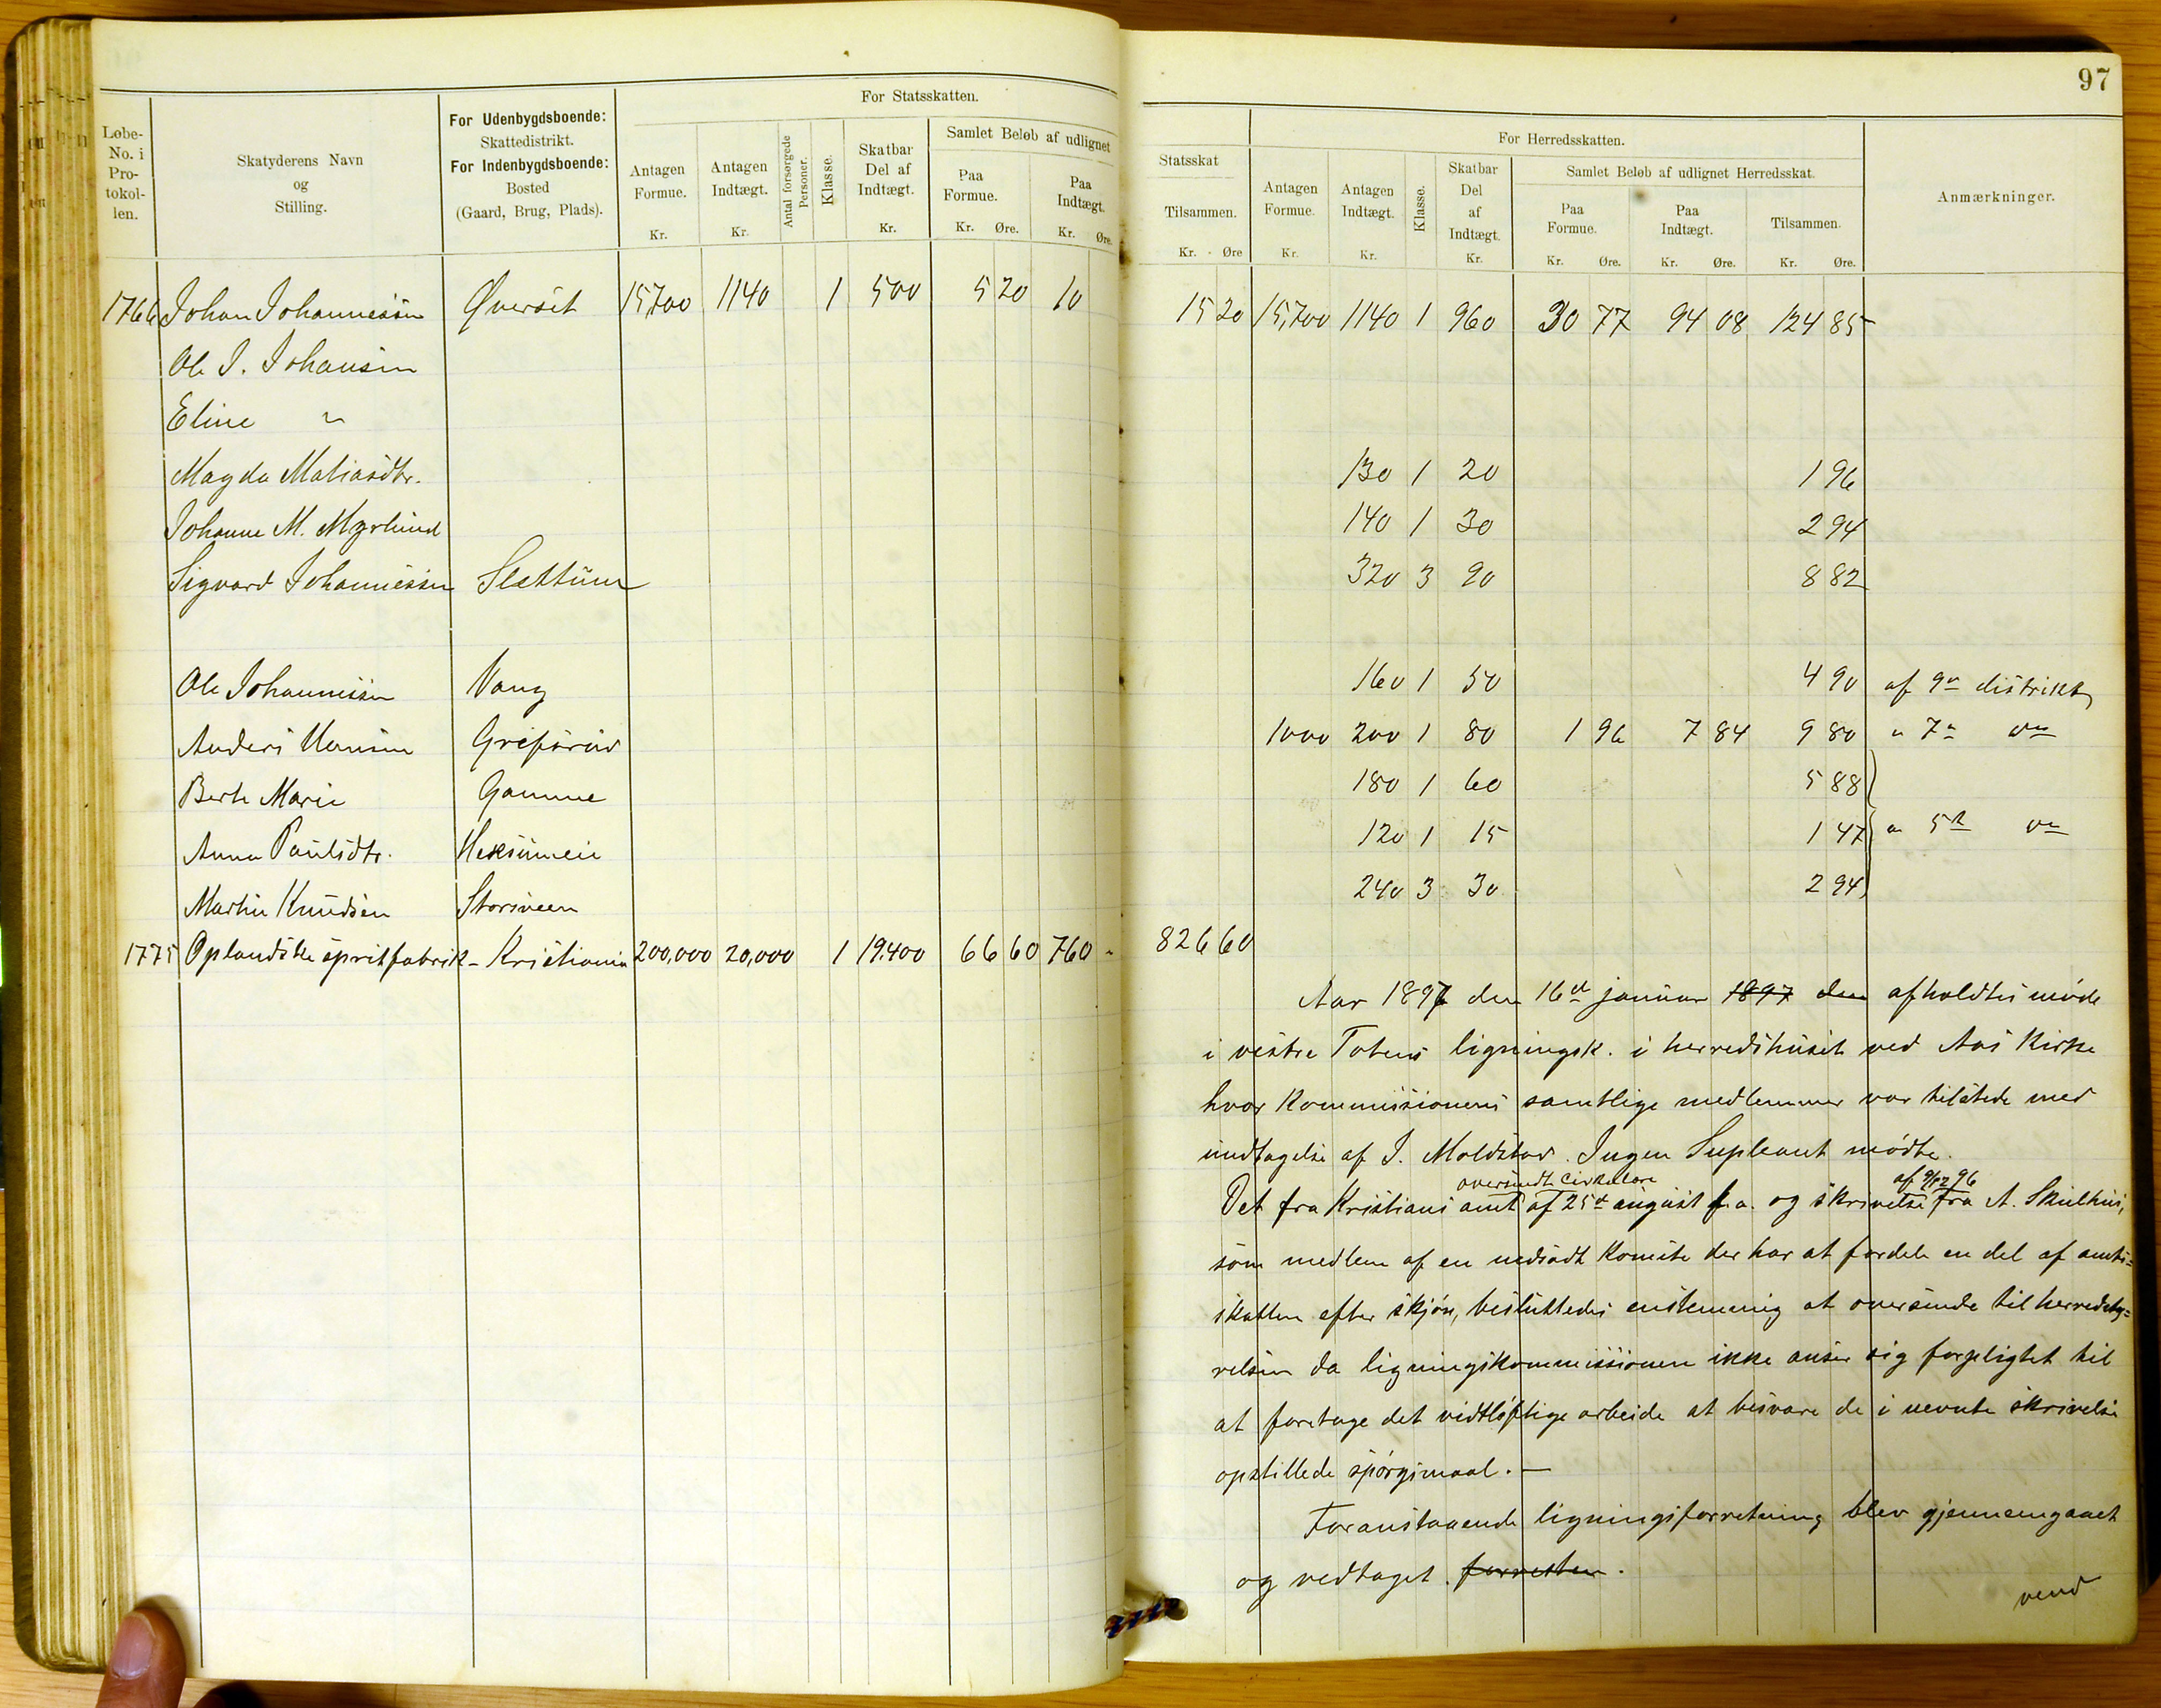 97
For Statsskatten.
Løbe-No. i Pro-tokol-len.
Skatyderens Navn og Stilling.
For Udenbygdsboende: Skattedistrikt. For Indenbygdsboende: Bosted (Gaard, Brug, Plads).
Antagen Formue. Kr.
Antagen Indtægt. Kr.
Antal forsørgede Personer.
Klasse.
Skatbar Del af Indtægt. Kr.
Samlet Beløb af udlignet
Paa Formue. Kr. Øre.
Paa Indtægt. Kr. Øre.
Statsskat
Tilsammen. Kr. Øre
For Herredsskatten.
Antagen Formue. Kr.
Antagen Indtægt. Kr.
Klasse.
Skatbar Del af Indtægt. Kr.
Samlet Beløb af udlignet Herredsskat.
Paa Formue. Kr. Øre.
Paa Indtægt. Kr. Øre.
Tilsammen. Kr. Øre.
Anmærkninger.
1766 Johan Johannessen Øverset 15,700 1140 1 500 5 20 10 15 20 15,700 1140 1 960 30 77 94 08 124 85
Ole J. Johansen
Eline "
Magda Matiasdtr. 130 1 20 1 96
Johanne M. Myrlund 140 1 30 2 94
Sigvard Johannessen Slettum 320 3 90 8 82
Ole Johannessen Vang 160 1 50 4 90 af 9de distrikt
Anders Hansen 1000 200 1 80 1 96 7 84 9 80 " 7de do
Berte Marie Gamme 180 1 60 5 88
Anna Paulsdtr. Heksumeie 120 1 15 1 47 " 5te do
Martin Knudsen Storsveen 240 3 30 2 94
1775 Oplandske spritfabrik - Kristiania 200,000 20,000 1 19.400 66 60 760 " 826 60
Aar 1897 den 16de januar 1897 den afholdtes møde
i vestre Totens ligningsk. i herredshuset ved Aas Kirke
hvor Kommissionens samtlige medlemmer var tilstede med
undtagelse af J. Moldstad. Ingen Supleant mødte.
oversendte cirkulære af 9/12 96
Det fra Kristians amt af 25de august f.a. og skrivelse fra A. Skulhus,
som medlem af en nedsadt Komite der har at fordele en del af amts=
skatten efter skjøn, besluttedes enstemmig at oversende til herredsty=
relsen da ligningskommissionen ikke anser sig forpligtet til
at foretage det vidtløftige arbeide at besvare de i nevnte skrivelse
opstillede spørgsmaal. —
Foranstaaende ligningsforretning blev gjennemgaaet
og vedtaget. forretten.
vend